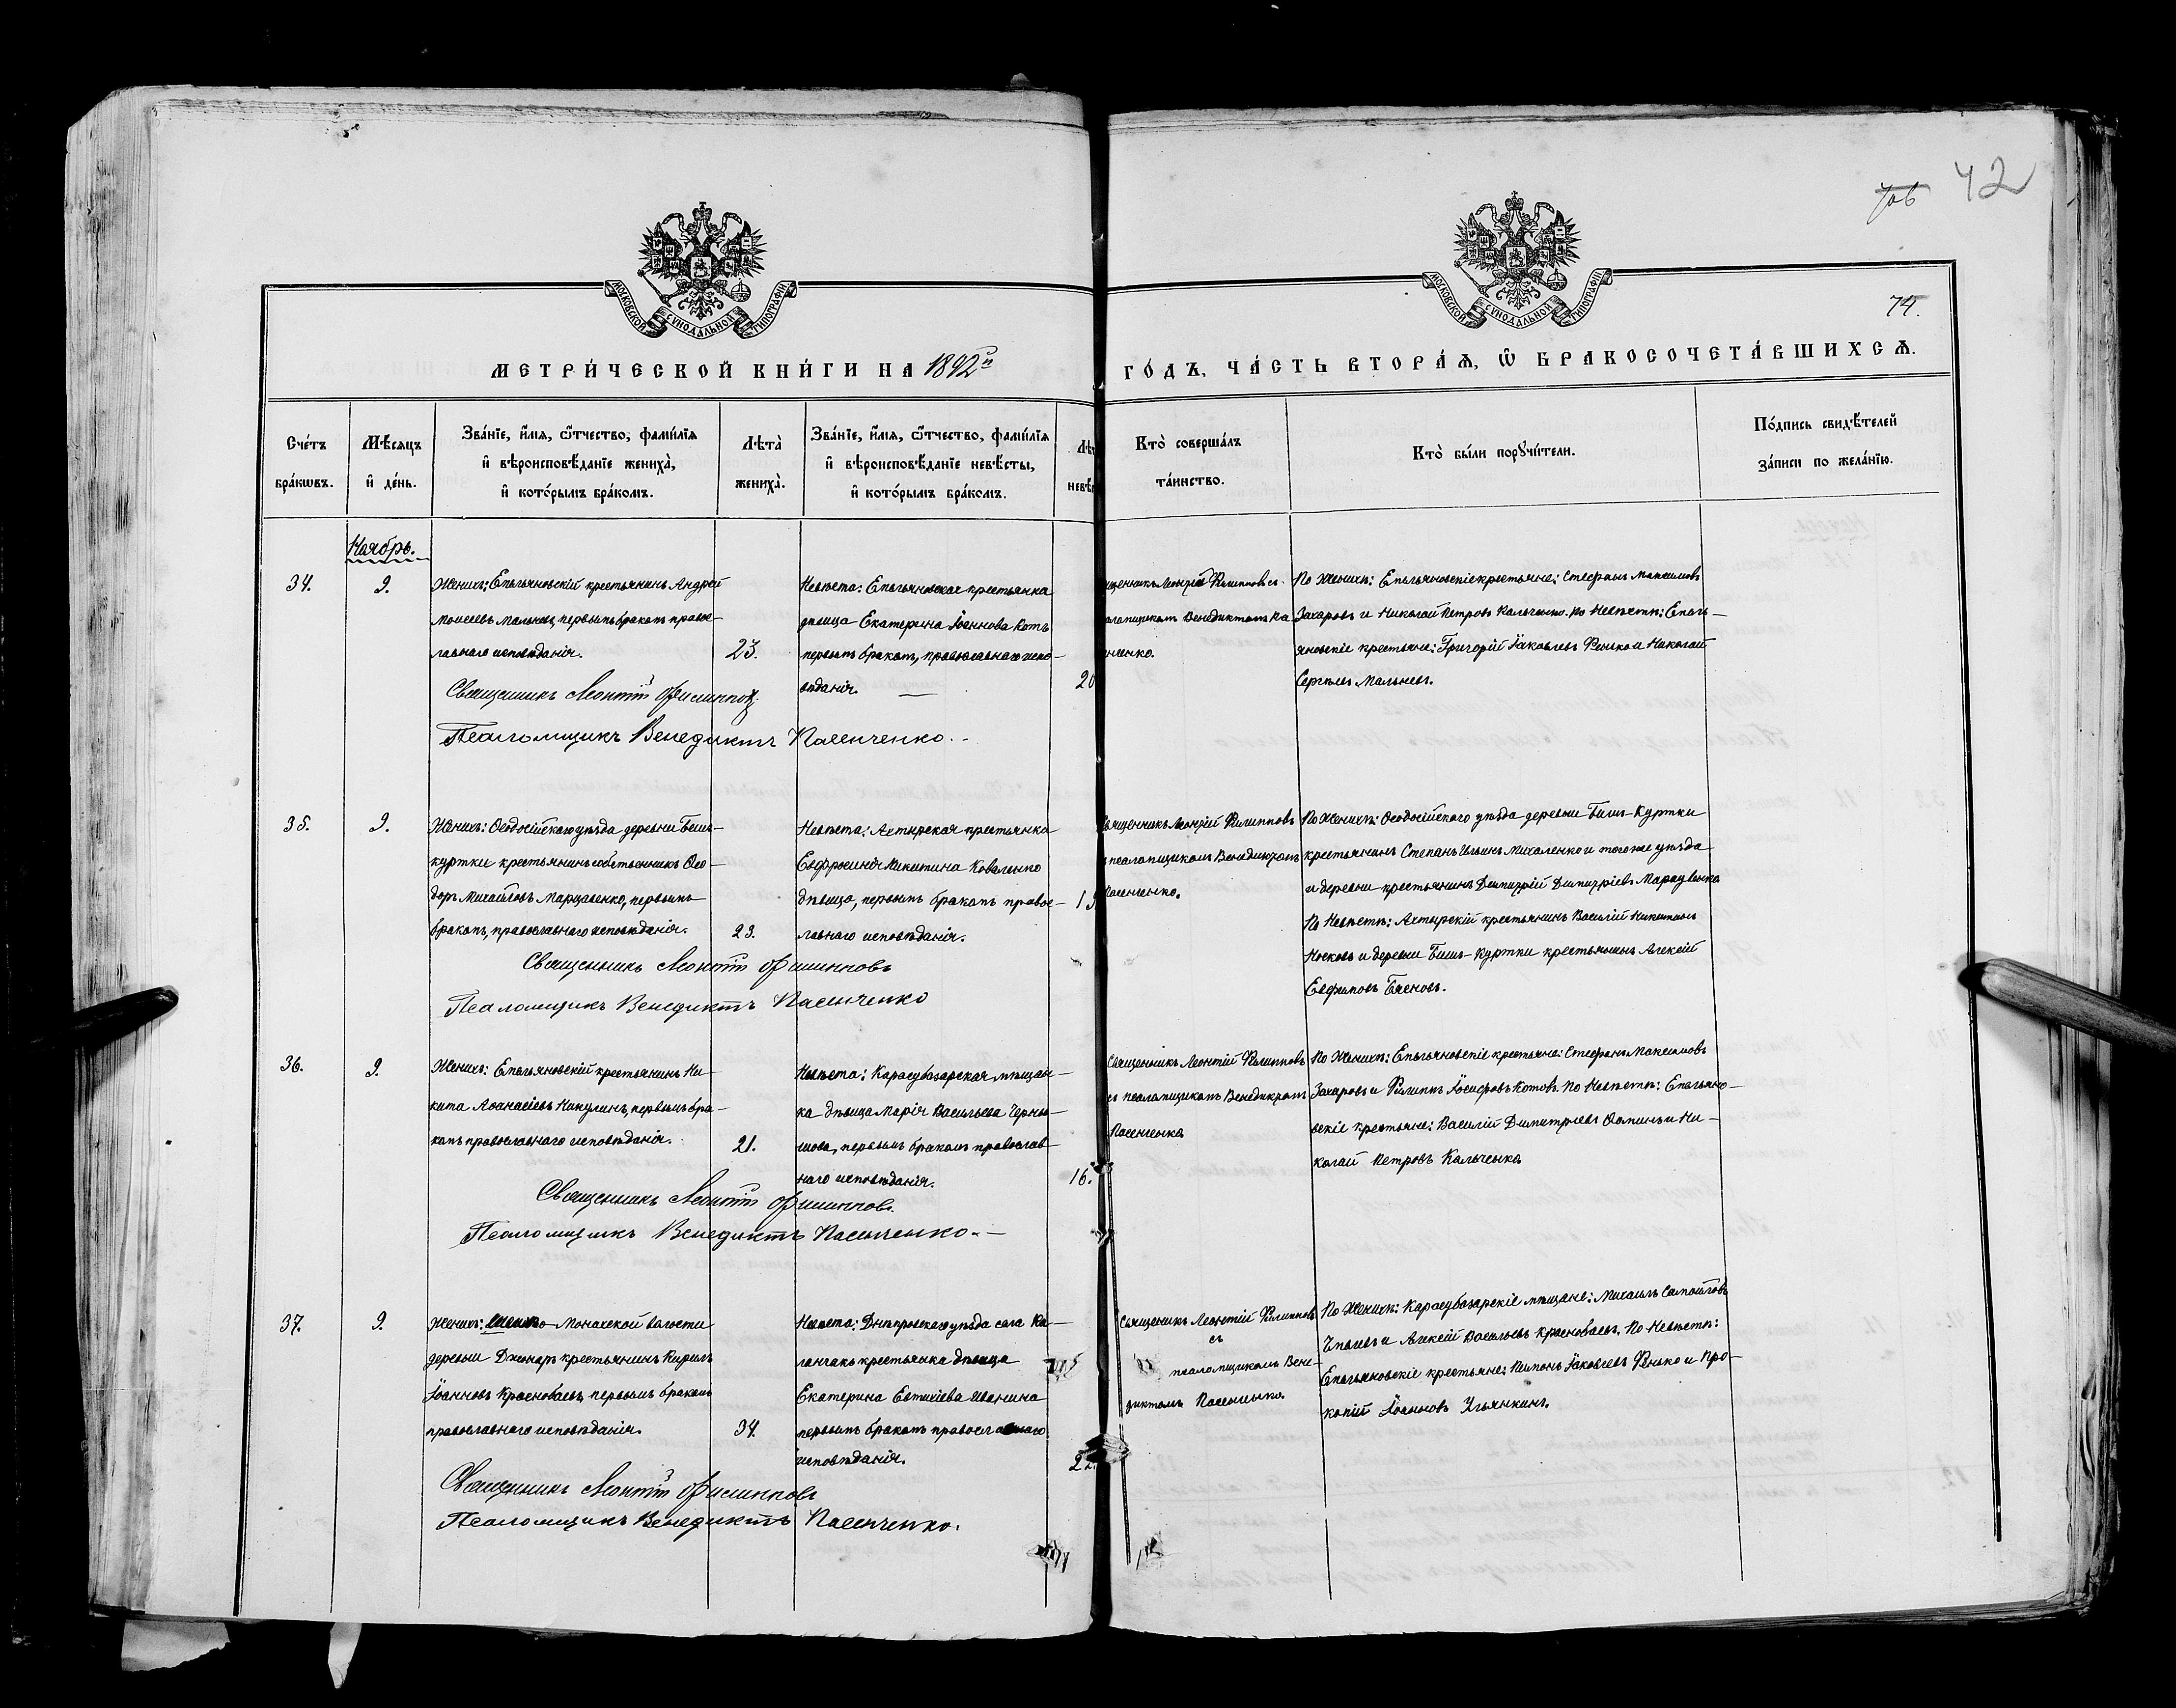 42
74.
МОСКОВСКОЙ СѴНОДАЛЬНОЙ ТИПОГРАФІИ
МОСКОВСКОЙ СѴНОДАЛЬНОЙ ТИПОГРАФІИ
МЕТРИ́ЧЕСКОЙ КНИ́ГИ НА 1892й
ГО́ДЪ, ЧА́СТЬ ВТОРА́Ѧ, Ѽ БРАКОСОЧЕТА́ВШИХСѦ.
Сче́тъ
бра́кѡвъ.
Мѣ́сяцъ
и҆ де́нь.
Зва́нїе, и҆́мѧ, ѻ҆́тчество, фами́лїѧ
и҆ вѣроисповѣ́данїе жениха̀,
и҆ кото́рымъ бра́комъ.
Лѣта̀
жениха̀.
Зва́нїе, и҆́мѧ, ѻ҆́тчество, фами́лїѧ
и҆ вѣроисповѣ́данїе невѣ́сты,
и҆ кото́рымъ бра́комъ.
Лѣт
невѣс
Кто̀ соверша́лъ
та́инство.
Кто̀ бы́ли порꙋчи́тели.
По́дпись свидѣ́телей
за́писи по жела́нїю.
Ноябрь.
34.
9.
Женихъ: крестьянинъ Андрей
Моисеевъ Мальневъ, первымъ бракомъ правос-
лавнаго исповѣданія.
23.
Невѣста: крестьянка
дѣвица Екатерина Іоаннова Котъ
первымъ бракомъ, православнаго испо-
вѣданія.
20
щенникъ Леонтій Филипповъ съ
аломщикомъ Венедиктомъ Па
енченко.
По Женихѣ: крестьяне: Стефанъ Максимовъ
Захаровъ и Николай Петровъ Кальченко. По Невѣстѣ:
яновскіе крестьяне: Григорій Іаковлевъ Фенько и Николай
Сергѣевъ Мальневъ.
Священникъ Леонтій Филипповъ.
Псаломщикъ Венедиктъ Пасенченко.
35.
9.
Женихъ: Ѳеодосійскаго уѣзда деревни Бешъ-
куртки крестьянинъ собственникъ Ѳео-
доръ Михайловъ Марцавенко, первымъ
бракомъ, православнаго исповѣданія.
23.
Невѣста: Ахтырская крестьянка
Евфросинія Никитина Коваленко
дѣвица, первымъ бракомъ правос-
лавнаго исповѣданія.
19
вященникъ Леонтій Филипповъ
псаломщикомъ Венедиктомъ
Пасенченко.
По Женихѣ: Ѳеодосійскаго уѣзда деревни Бешъ-Куртки
крестьянинъ Степанъ Ильинъ Михаленко и того же уѣзда
и деревни крестьянинъ Димитрій Димитріевъ Марцавенко
По Невѣстѣ: Ахтырскій крестьянинъ Василій Никитинъ
Носковъ и деревни Бешъ-Куртки крестьянинъ Алексій
Евфимовъ
Священникъ Леонтій Филипповъ
Псаломщикъ Венедиктъ Пасенченко
36.
9.
Женихъ: крестьянинъ Ни-
кита Аѳанасіевъ Никулинъ, первымъ бра-
комъ православнаго исповѣданія.
21.
Невѣста: Карасубазарская мѣщан-
ка дѣвица Марія Васильева Черны-
шова, первымъ бракомъ православ-
наго исповѣданія.
16.
Священникъ Леонтій Филипповъ
съ псаломщикомъ Венедиктомъ
Пасенченко
По Женихѣ: крестьяне: Стефанъ Максимовъ
Захаровъ и Филиппъ Іосифовъ Котовъ. По Невѣстѣ:
вскіе крестьяне: Василій Димитріевъ Ѳоминъ и Ни-
колай Петровъ Кальченко
Священникъ Леонтій Филипповъ.
Псаломщикъ Венедиктъ Пасенченко.
37.
9.
Женихъ: Монахской волости
деревни Джонаръ крестьянинъ Кирилъ
Іоанновъ Красноваевъ, первымъ бракомъ
православнаго исповѣданія.
34.
Невѣста: Днѣпровскаго уѣзда села Ка-
ланчакъ крестьянка дѣвица
Екатерина Евтихіева Иванина
первымъ бракомъ православнаго
исповѣданія.
22.
Священникъ Леонтій Филипповъ
съ
псаломщикомъ Вене-
диктомъ Пасенченко
По Женихѣ: Карасубазарскіе мѣщане: Михаилъ Самойловъ
и Алексій Васильевъ Красноваевъ. По Невѣстѣ:
крестьяне: Іаковлевъ Фенько и Про-
копій Іоанновъ Ульянкинъ.
Священникъ Леонтій Филипповъ
Псаломщикъ Венедиктъ Пасенченко.